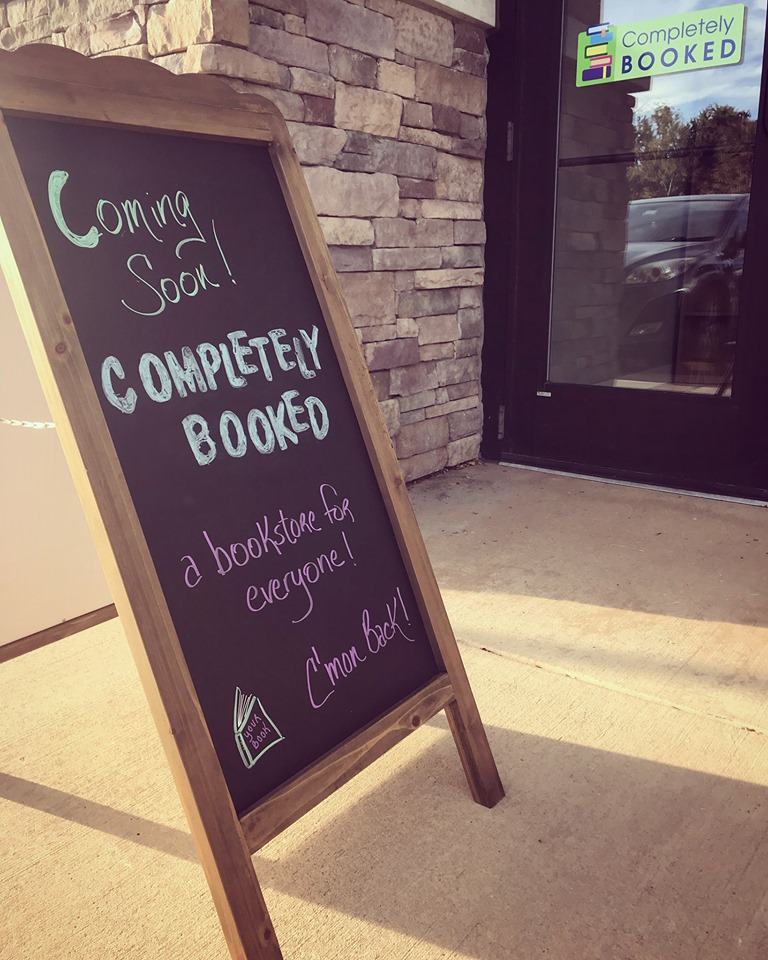 Completely
BOOKED
Coming
Soon!
COMPLETELY
BOOKED
a bookstore for
everyone!
C'mon Back!
YOUR
BOOK